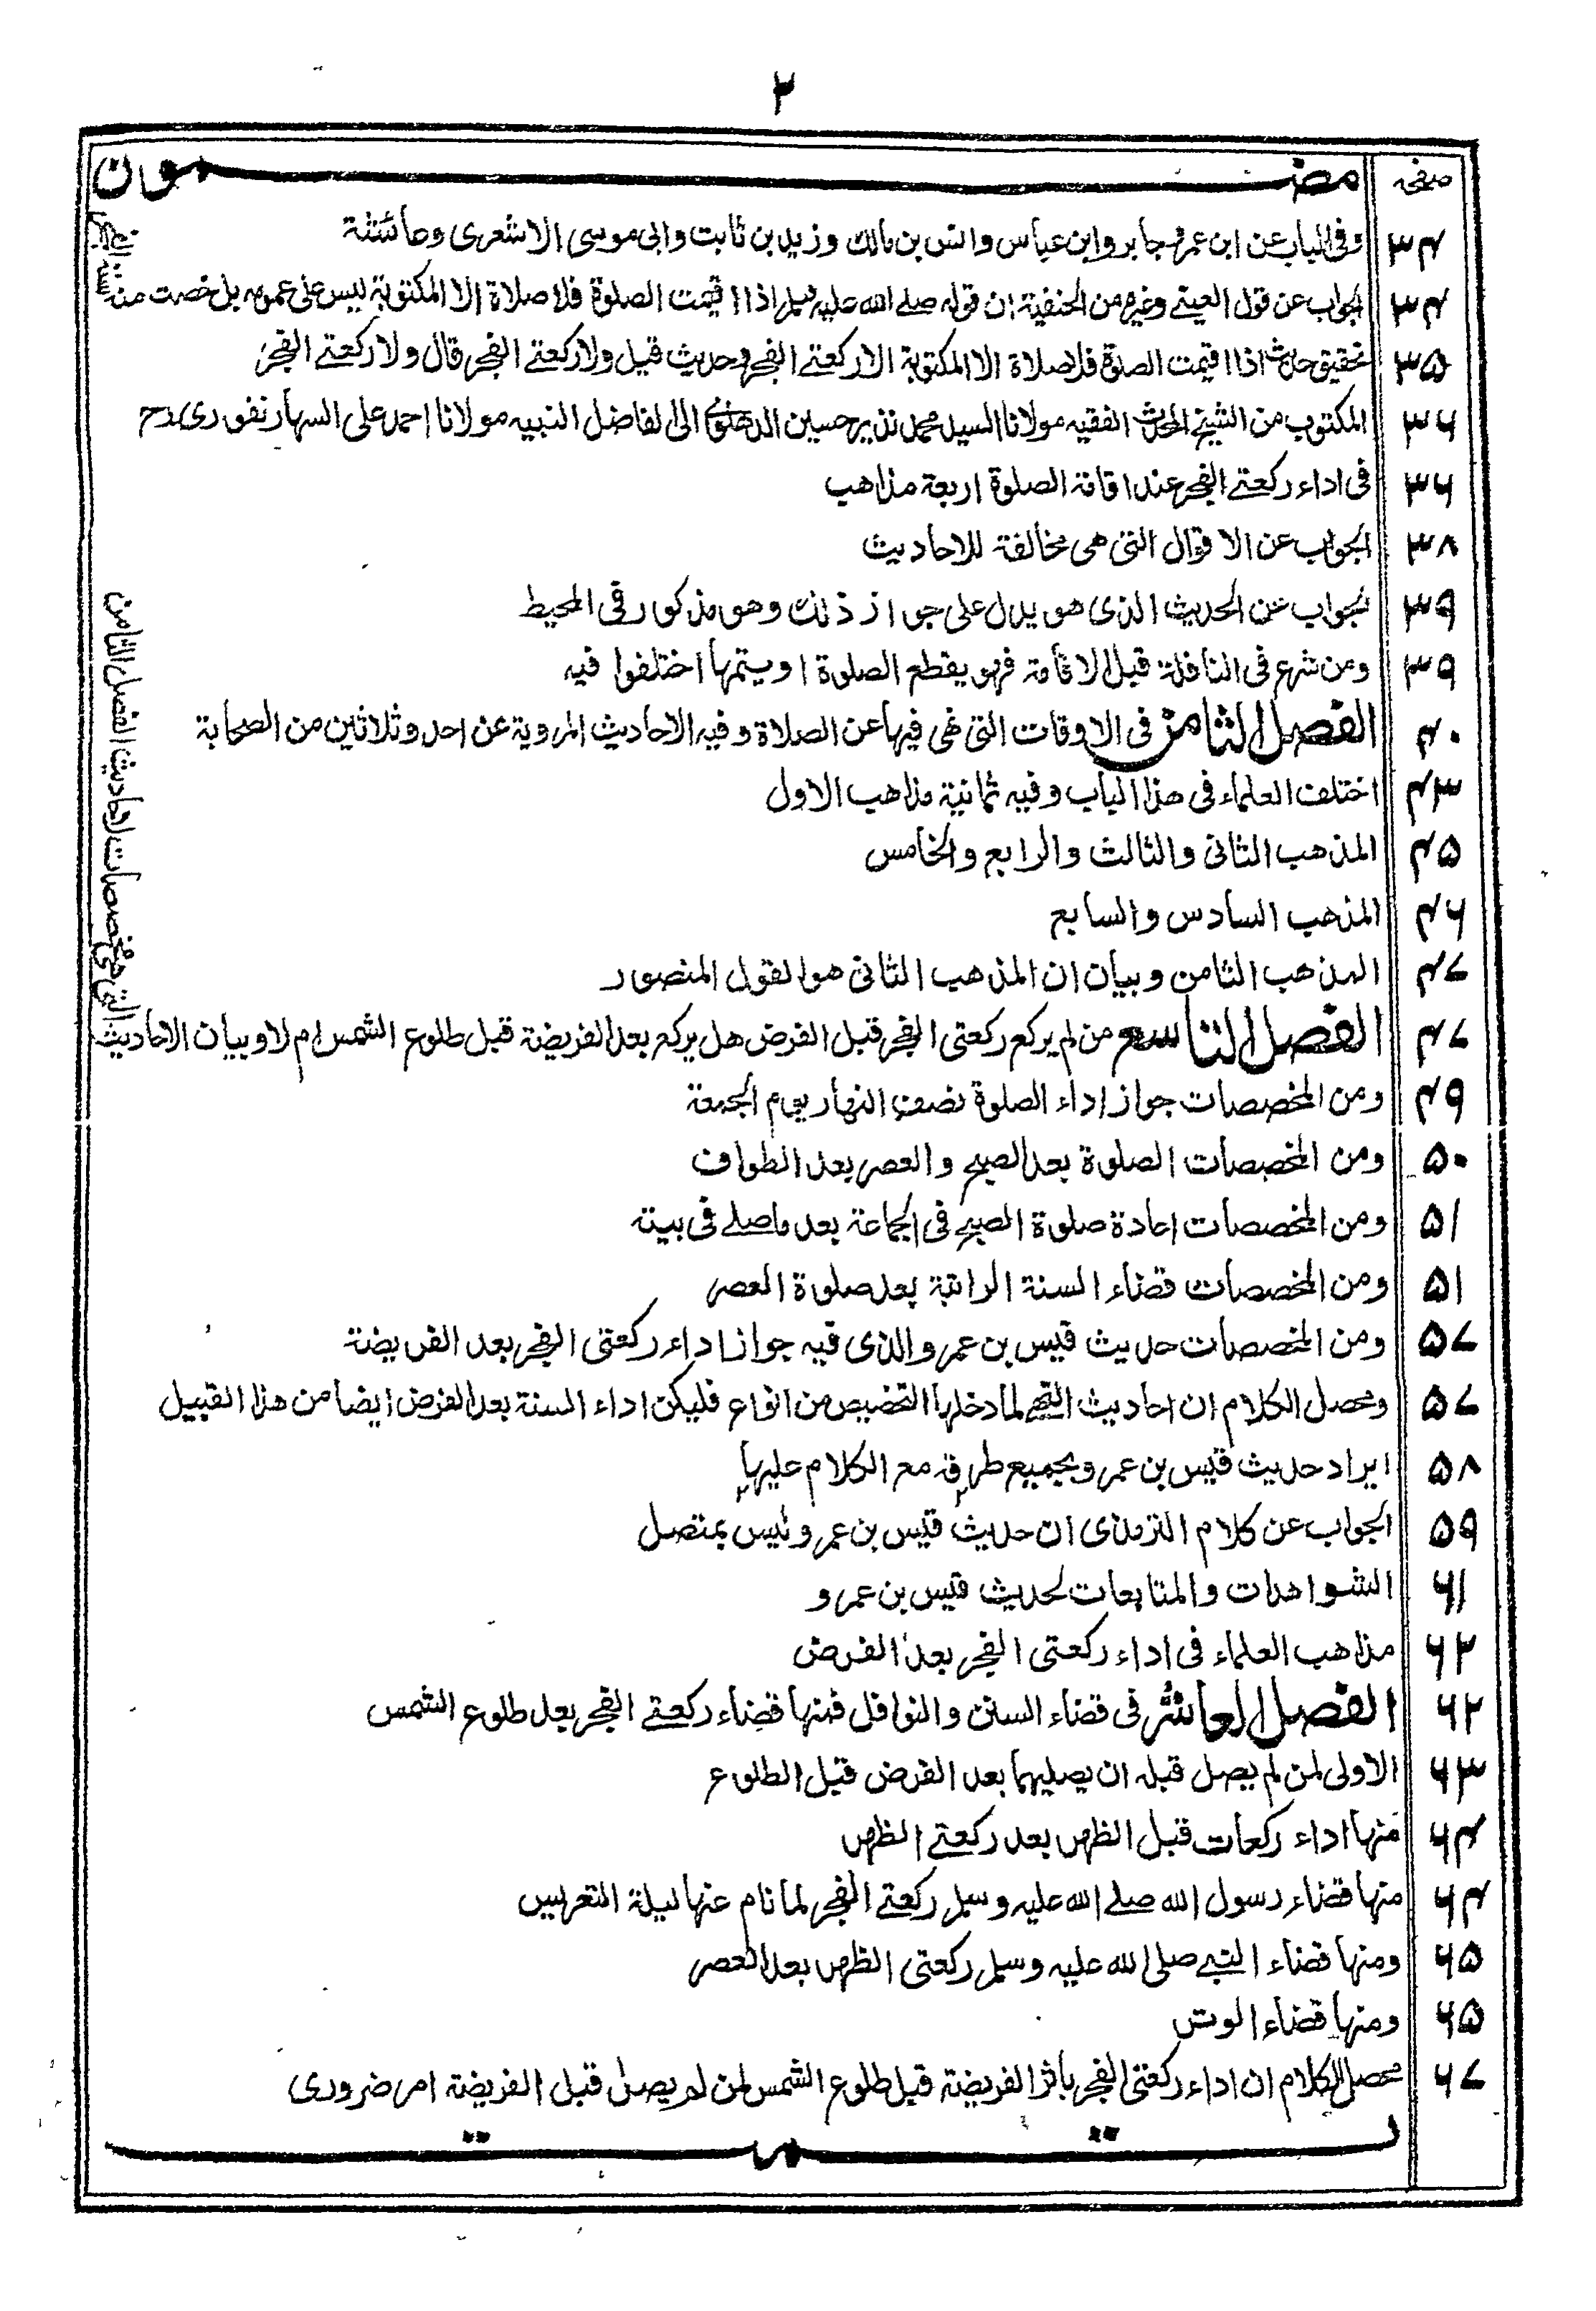 ٢
صفحہ مضمون
٣٤ وفی الباب عن ابن عمر وجابر وابن عباس وانس بن مالك وزید بن ثابت وابی موسی الاشعری وعائشة
٣٤ الجواب عن قول العینی وغیرہ من الحنفیة ان قوله صلی الله علیه وسلم اذا اقیمت الصلوة فلا صلاة الا المکتوبة لیس علی عمومه بل خصت منه سنة الفجر
٣٥ تحقیق حدیث اذا اقیمت الصلوة فلا صلاة الا المکتوبة الا رکعتے الفجر وحدیث قیل ولا رکعتے الفجر قال ولا رکعتے الفجر
٣٦ المکتوب من الشیخ المحدث الفقیه مولانا السید محمد نذیر حسین الدهلوی الی الفاضل النبیه مولانا احمد علی السهارنفوری رح
٣٦ فی اداء رکعتے الفجر عند اقامة الصلوة اربعة مذاهب
٣٨ الجواب عن الاقوال التی هی مخالفة للاحادیث
٣٩ الجواب عن الحدیث الذی هو یدل علی جواز ذلك وهو مذکور فی المحیط
٣٩ ومن شرع فی النافلة قبل الاقامة فهو یقطع الصلوة او یتمها اختلفوا فیه
٤٠ الفصل الثامن فی الاوقات التی نهی فیها عن الصلاة وفیه الاحادیث المرویة عن احد وثلاثین من الصحابة
٤٣ اختلف العلماء فی هذا الباب وفیه ثمانیة مذاهب الاول
٤٥ المذهب الثانی والثالث والرابع والخامس
٤٦ المذهب السادس والسابع
٤٧ المذهب الثامن وبیان ان المذهب الثانی هو القول المنصور
٤٧ الفصل التاسع من لم یرکع رکعتی الفجر قبل الفرض هل یرکع بعد الفریضة قبل طلوع الشمس ام لا وبیان الاحادیث التی هی مخصصات احادیث الفصل الثامن
٤٩ ومن المخصصات جواز اداء الصلوة نصف النهار یوم الجمعة
٥٠ ومن المخصصات الصلوة بعد الصبح والعصر بعد الطواف
٥١ ومن المخصصات اعادة صلوة الصبح فی الجماعة بعد ما صلے فی بیته
٥١ ومن المخصصات قضاء السنة الراتبة بعد صلوة العصر
٥٧ ومن المخصصات حدیث قیس بن عمرو الذی فیه جواز اداء رکعتی الفجر بعد الفریضة
٥٧ ومحصل الکلام ان احادیث النهے لما دخلها التخصیص من انواع فلیکن اداء السنة بعد الفرض ایضا من هذا القبیل
٥٨ ایراد حدیث قیس بن عمرو بجمیع طرقه مع الکلام علیها
٥٩ الجواب عن کلام الترمذی ان حدیث قیس بن عمرو لیس بمتصل
٦١ الشواهدات والمتابعات لحدیث قیس بن عمرو
٦٢ مذاهب العلماء فی اداء رکعتی الفجر بعد الفرض
٦٢ الفصل العاشر فی قضاء السنن والنوافل فمنها قضاء رکعتے الفجر بعد طلوع الشمس
٦٣ الاولی لمن لم یصل قبله ان یصلیهما بعد الفرض قبل الطلوع
٦٤ منها اداء رکعات قبل الظهر بعد رکعتے الظهر
٦٤ منها قضاء رسول الله صلے الله علیه وسلم رکعتے الفجر لما نام عنها لیلة التعریس
٦٥ ومنها قضاء النبے صلی الله علیه وسلم رکعتی الظهر بعد العصر
٦٥ ومنها قضاء الوتر
٦٧ محصل الکلام ان اداء رکعتی الفجر باثر الفریضة قبل طلوع الشمس لمن لم یصل قبل الفریضة امر ضروری
تمت